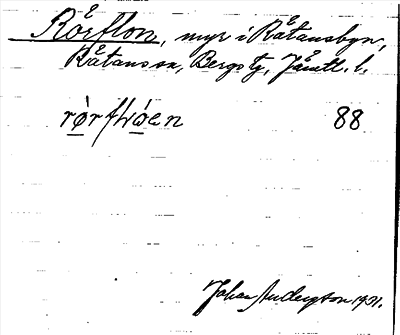 Rörflon, myr i Råtansbyn,
Råtans sn, Bergs tg, Jämtl. l.
88
Johan Andersson 1931.